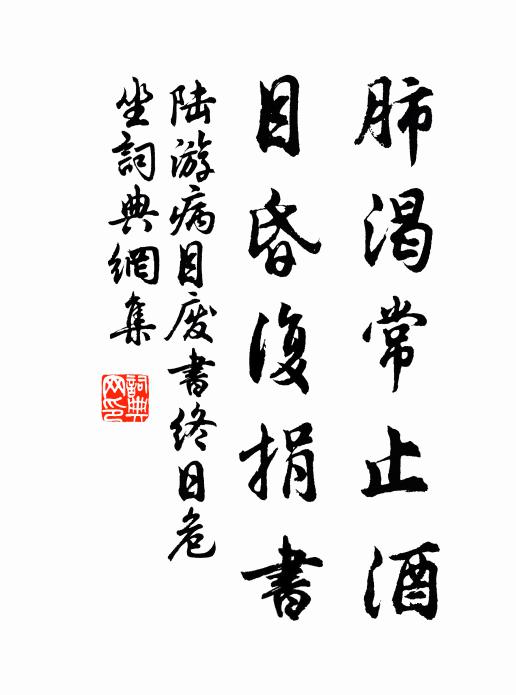 肺渴常止酒
目昏復捐書
陆游病目废書终日危
坐詞典網集
詞典网印